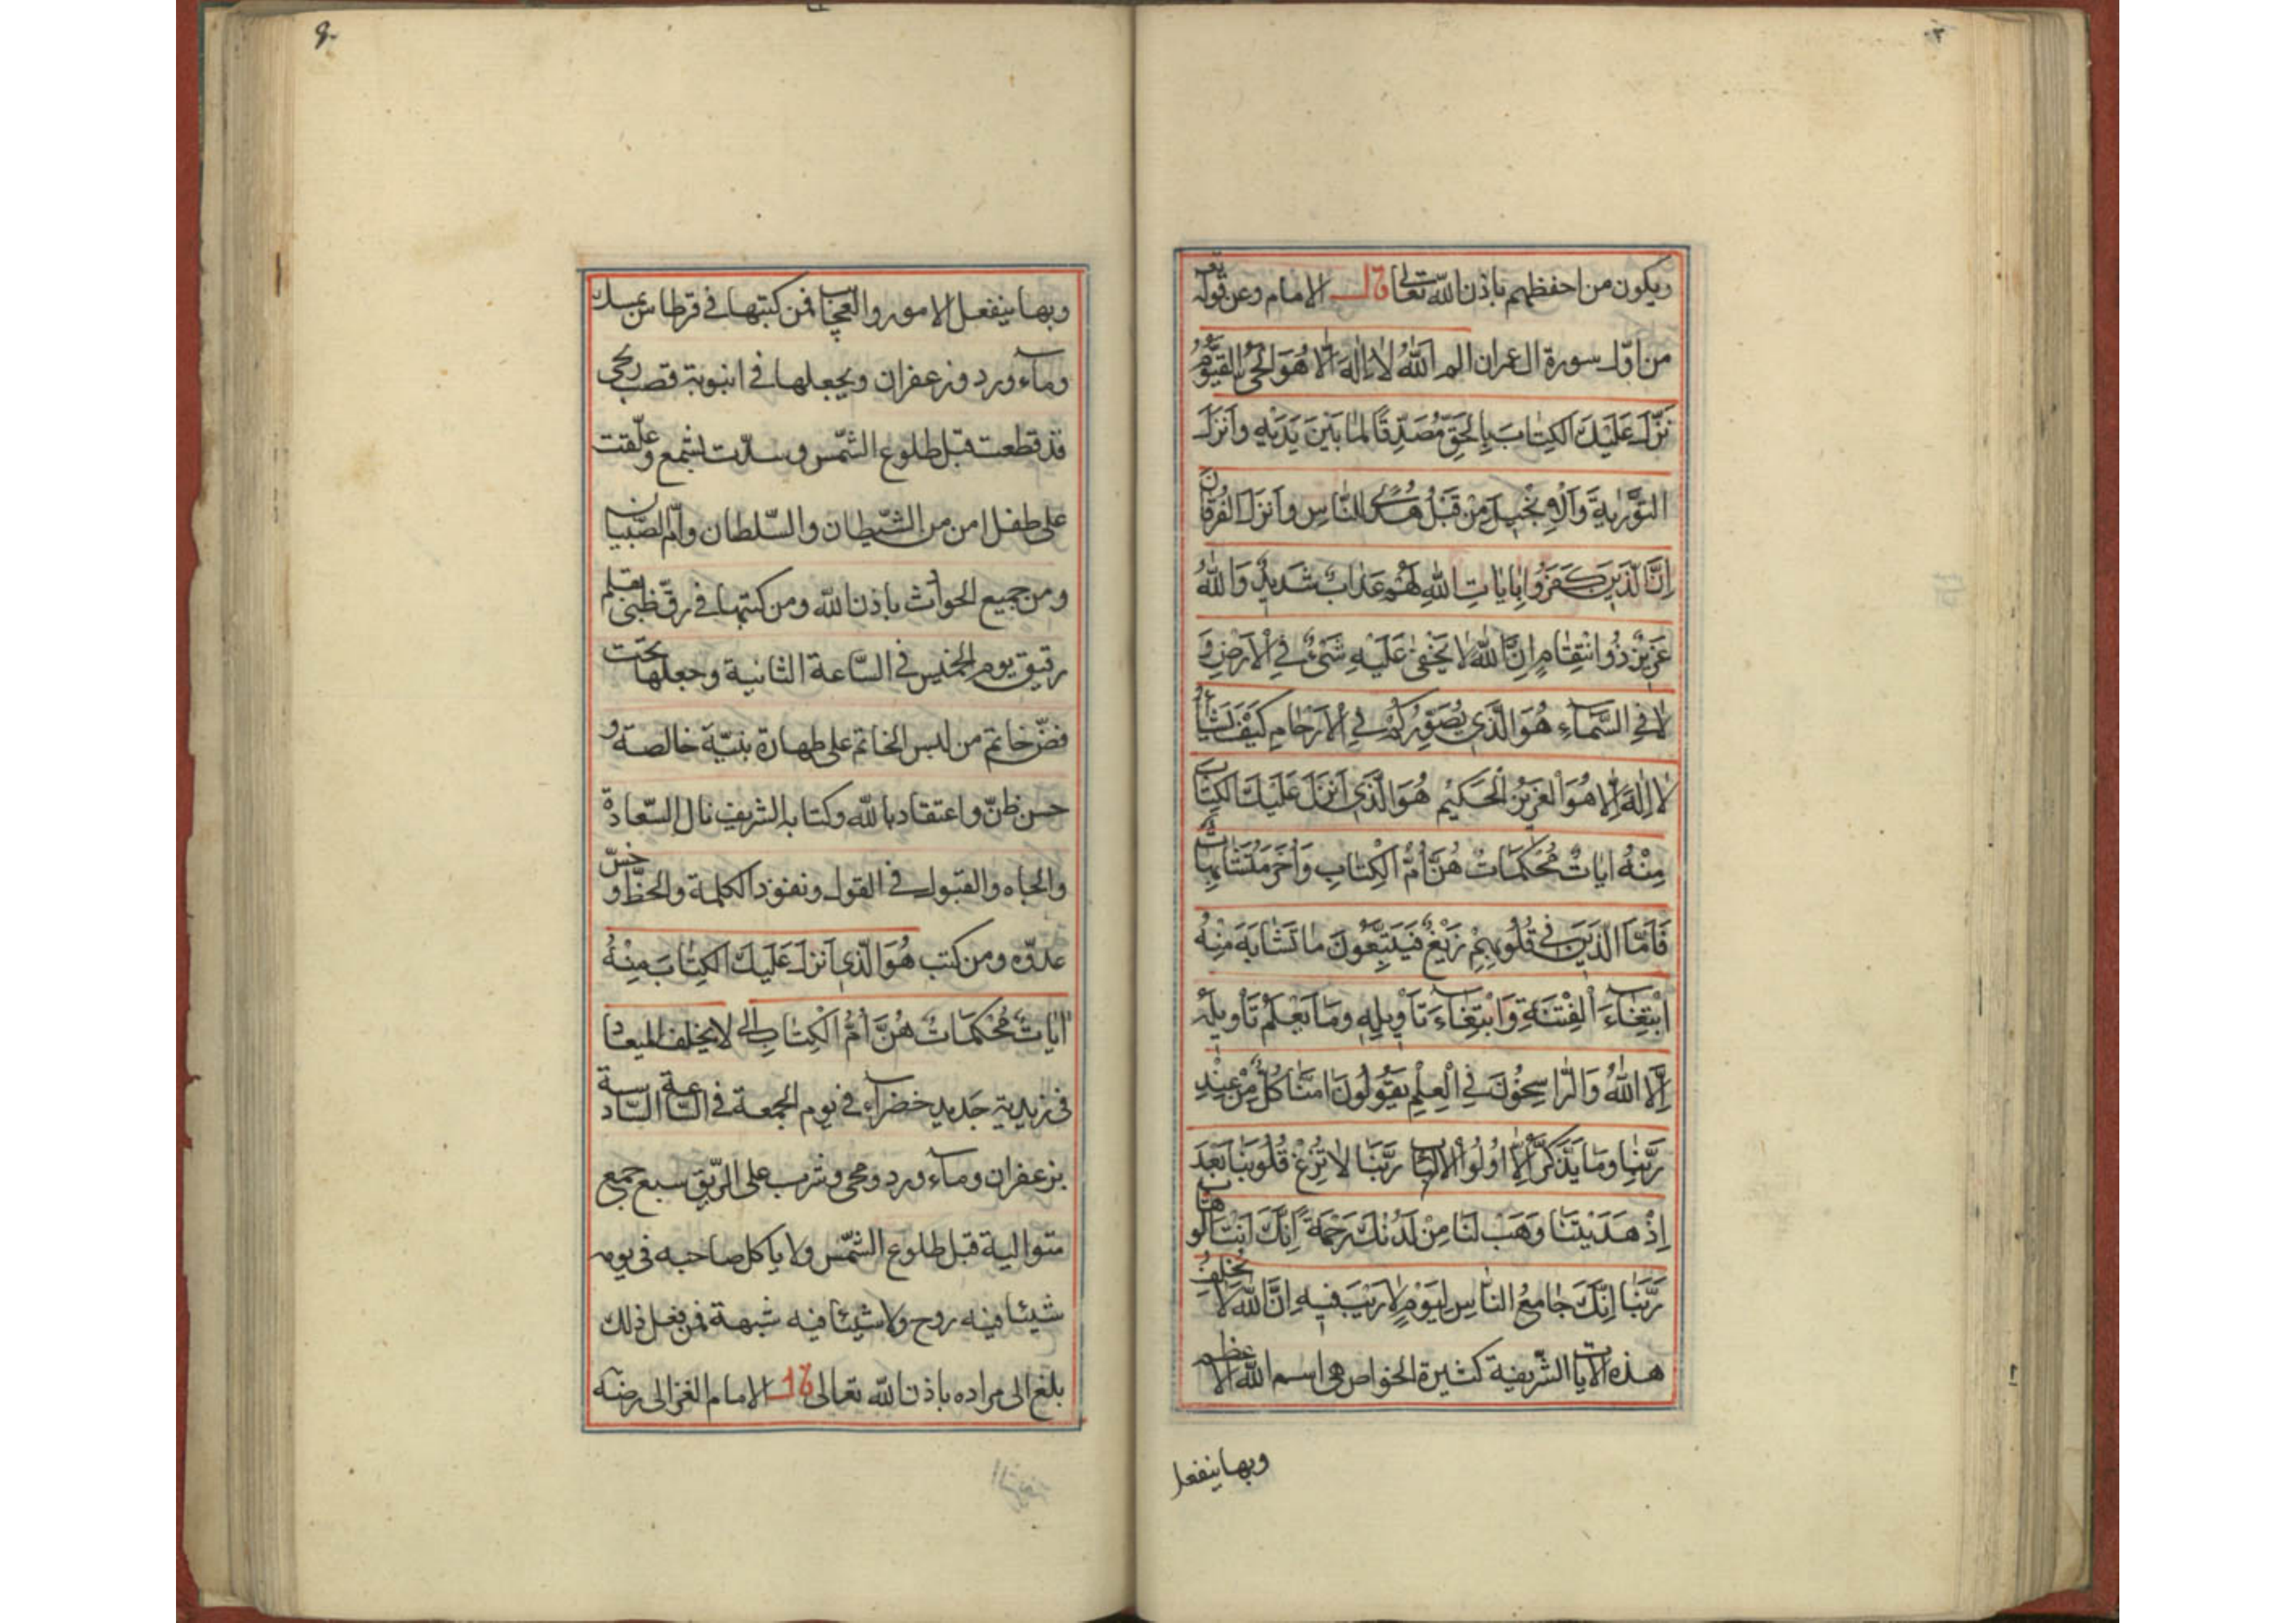 ويكون من احفظهم باذن الله تعالى قال الامام وعن قوله تع
من اوّل سورة ال عمران الم اَللهُ لاٰ اِلٰهَ اِلاّٰ هُوَ الْحَىُّ الْقَيُّومُ
نَزَّلَ عَلَيْكَ الْكِتٰابَ بِالْحَقِّ مُصَدِّقًا لِمٰا بَيْنَ يَدَيْهِ وَاَنْزَلَ
التَّوْرٰيةَ وَالْاِنْجٖيلَ مِنْ قَبْلُ هُدًى لِلنّٰاسِ وَاَنْزَلَ الْفُرْقٰانَ
اِنَّ الَّذٖينَ كَفَرُوا بِاٰيٰاتِ اللهِ لَهُمْ عَذٰابٌ شَدٖيدٌ وَاللهُ
عَزٖيزٌ ذُو انْتِقٰامٍ اِنَّ اللهَ لاٰ يَخْفىٰ عَلَيْهِ شَىْءٌ فِي الْاَرْضِ وَ
لاٰ فِي السَّمٰاءِ هُوَ الَّذٖي يُصَوِّرُكُمْ فِي الْاَرْحٰامِ كَيْفَ يَشٰاءُ
لاٰ اِلٰهَ اِلاّٰ هُوَ الْعَزٖيزُ الْحَكٖيمُ هُوَ الَّذٖي اَنْزَلَ عَلَيْكَ الْكِتٰابَ
مِنْهُ اٰيٰاتٌ مُحْكَمٰاتٌ هُنَّ اُمُّ الْكِتٰابِ وَاُخَرُ مُتَشٰابِهٰاتٌ
فَاَمَّا الَّذٖينَ فٖي قُلُوبِهِمْ زَيْغٌ فَيَتَّبِعُونَ مٰا تَشٰابَهَ مِنْهُ
ابْتِغٰاءَ الْفِتْنَةِ وَابْتِغٰاءَ تَأْوٖيلِهٖ وَمٰا يَعْلَمُ تَأْوٖيلَهُ
اِلَّا اللهُ وَالرّٰاسِخُونَ فِي الْعِلْمِ يَقُولُونَ اٰمَنّٰا كُلٌّ مِنْ عِنْدِ
رَبِّنٰا وَمٰا يَذَّكَّرُ اِلاّٰ اُولُوا الْاَلْبٰابِ رَبَّنٰا لاٰ تُزِغْ قُلُوبَنٰا بَعْدَ
اِذْ هَدَيْتَنٰا وَهَبْ لَنٰا مِنْ لَدُنْكَ رَحْمَةً اِنَّكَ اَنْتَ الْوَهّٰابُ
رَبَّنٰا اِنَّكَ جٰامِعُ النّٰاسِ لِيَوْمٍ لاٰ رَيْبَ فٖيهِ اِنَّ اللهَ لاٰ يُخْلِفُ
هذه الآيات الشّريفة كثيرة الخواص هى اسم الله الاعظم
وبها ينفعل
وبها ينفعل الامور والعجايب فمن كتبها فى قرطاس بمسك
وماء ورد وزعفران ويجعلها فى انبوبة قصب
قد قطعت قبل طلوع الشّمس وسدّت بشمع وعلّقت
على طفل امن من الشّيطان والسّلطان وامّ الصّبيان
ومن جميع الحوادث باذن الله ومن كتبها فى رقّ ظبى بقلم
رقيق يوم الخميس فى السّاعة الثانية وجعلها تحت
فصّ خاتم من لبس الخاتم على طهارة بنيّة خالصة و
حسن ظنّ واعتقاد بالله وكتابه الشريف نال السّعادة
والجاه والقبول فى القول ونفوذ الكلمة والحظّ و
عدوّه ومن كتب هُوَ الَّذٖي اَنْزَلَ عَلَيْكَ الْكِتٰابَ مِنْهُ
اٰيٰاتٌ مُحْكَمٰاتٌ هُنَّ اُمُّ الْكِتٰابِ الى لا يخلف الميعاد
فى زبدية جديد خضراء فى يوم الجمعة فى السّاعة السّادسة
بزعفران وماء ورد ومحى وشرب على الرّيق سبع جمع
متوالية قبل طلوع الشّمس ولا ياكل صاحبه فى يومه
شيئا فيه روح ولا شيئا فيه شبهة فمن يفعل ذلك
بلغ الى مراده باذن الله تعالى قال الامام الغزالى رضى‌الله